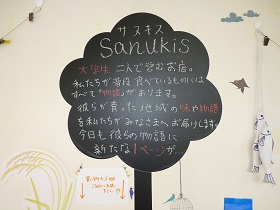 サヌキス
Sanukis
大学生 二人で営むお店。
私たちが普段 食べているものには
すべて"物語"があります。
彼らが育った地域の味や物語
を私たちがみなさまへお届けします。
今日も彼らの物語に
新たな1ページが…